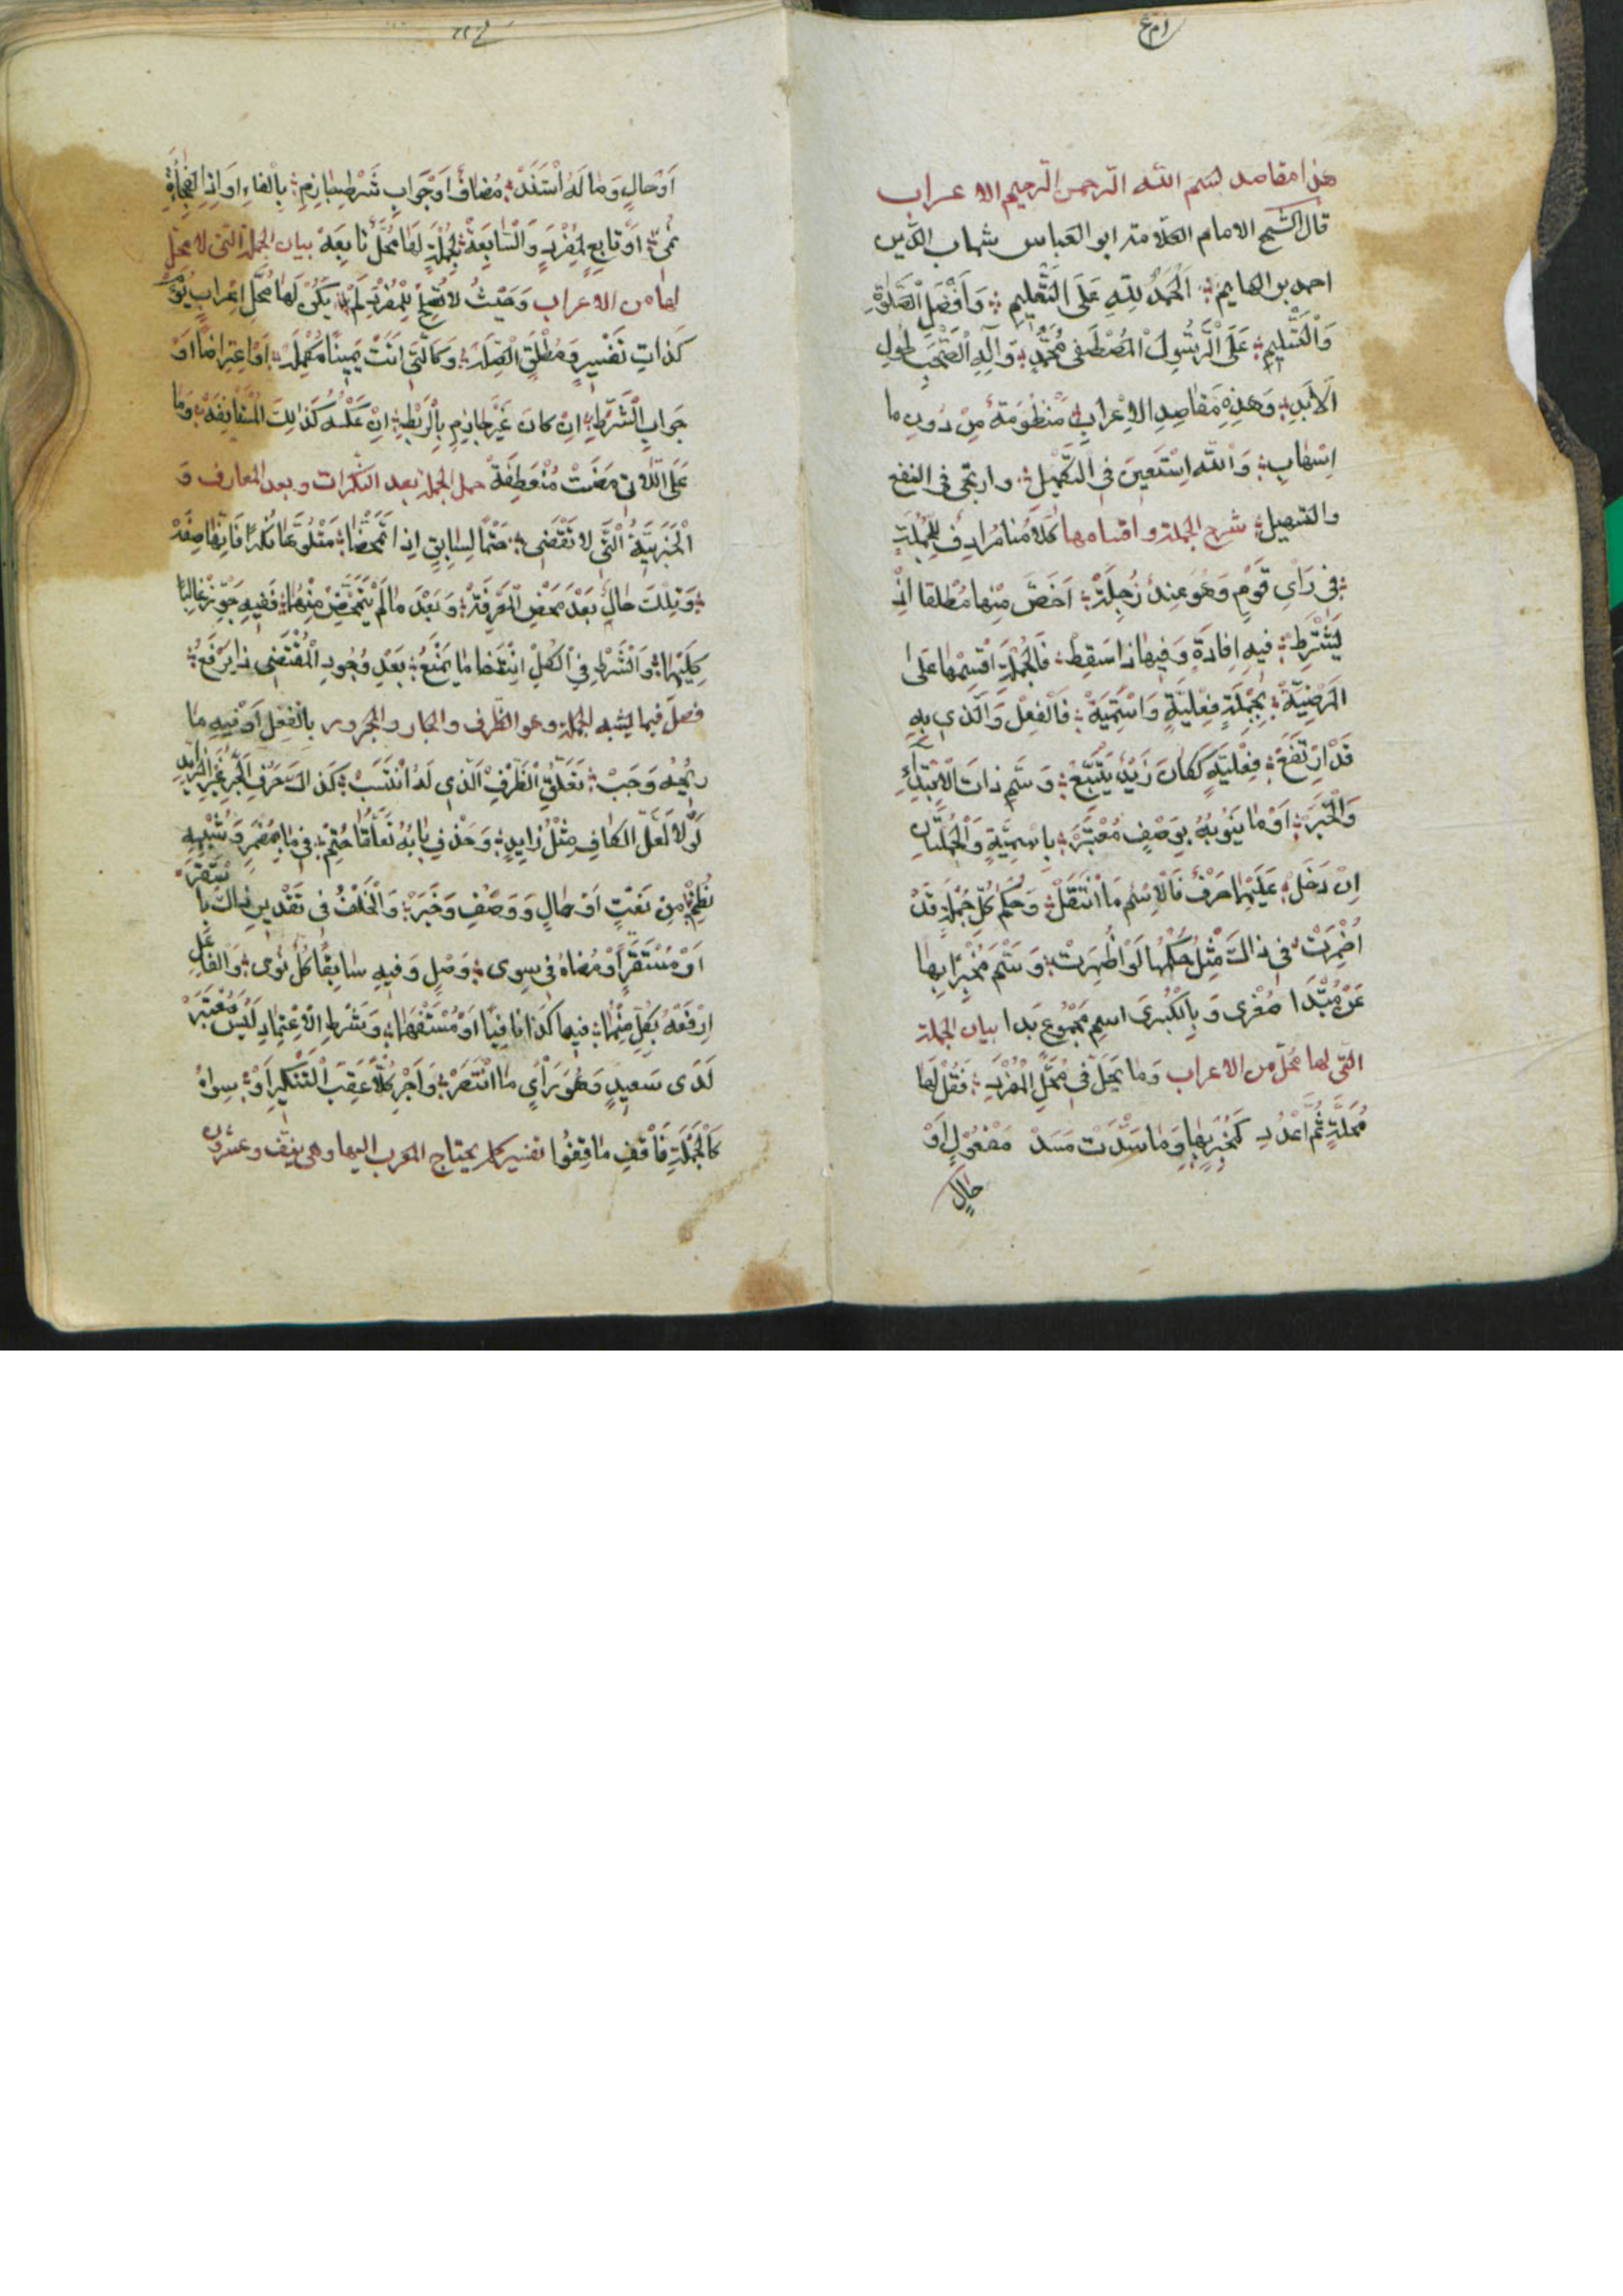 هذا مقاصد بسم الله الرحمن الرحيم الاعراب
قال الشيخ الامام العلامة ابو العباس شهاب الدين
احمد بن الهايم؛ اَلْحَمْدُ لِلّٰهِ عَلَى التَّعْلِيمِ؛ وَاَفْضَلُ الصَّلوٰةِ
وَالتَّسْلِيمِ؛ عَلَى الرَّسُولِ الْمُصْطَفٰى مُحَمَّدٍ؛ وَآلِهِ الصَّحْبِ لِطُولِ
الْاَبَدِ؛ وَهٰذِهِ مَقَاصِدُ الْاِعْرَابِ؛ مَنْظُومَةٌ مِنْ دُونِ مَا
اِسْهَابِ؛ وَاللّٰهَ اَسْتَعِينُ فِي التَّكْمِيلِ؛ وارتجى فى النفع
والتسهيل؛ شرح الجملة واقسامها كَلَامُنَا مُرَادِفٌ لِلْجُمْلَةِ
؛ فِي رَأْيِ قَوْمٍ وَهُوَ عِنْدَ جُلَّةِ؛ اَخَصُّ مِنْهَا مُطْلَقًا اِذْ
يُشْتَرَطْ؛ فِيهِ اِفَادَةٌ وَفِيهَا ذَا سَقَطْ؛ فَالْجُمْلَةَ اقْسِمْهَا عَلَى
الْمَرْضِيَّةْ؛ بِجُمْلَةٍ فِعْلِيَّةٍ وَاسْمِيَّةْ؛ فَالْفِعْلُ وَالَّذِي بِهِ
قَدْ ارْتَفَعْ؛ فِعْلِيَّةٌ كَكَانَ زَيْدٌ يَتَّبِعْ؛ وَسَمِّ ذَاتَ الْاِبْتِدَاءِ
وَالْخَبَرْ؛ اَوْ مَا يَنُوبُهُ بِوَصْفٍ مُعْتَبَرْ؛ بِاسْمِيَّةٍ وَالْجُمْلَتَانِ
اِنْ دَخَلْ؛ عَلَيْهِمَا حَرْفٌ فَالْاِسْمُ مَا انْتَقَلْ؛ وَحُكْمُ كُلِّ جُمْلَةٍ قَدْ
اُضْمِرَتْ؛ فِي ذَالِكَ مِثْلُ حُكْمِهَا لَوْ اُظْهِرَتْ؛ وَسَمِّ مُخْبَرًا بِهَا
عَنْ مُبْتَدَا صُغْرٰى وَبِالْكُبْرٰى اسم مَجْمُوعٍ بَدَا بيان الجملة
التى لها محل من الاعراب وَمَا يَحُلُّ فِي مَحَلِّ الْمُفْرَدِ؛ فَقُلْ لَهَا
مَحَلَّةٌ ثُمَّ اعْدُدِ كَمُخْبَرٍ بِهَا وَمَا سَدَّتْ مَسَدْ مَفْعُولٍ اَوْ
حَالٍ
اَوْ حَالٍ وَمَا لَهُ اسْتَنَدْ؛ مُضَافٌ اَوْ جَوَابِ شَرْطٍ جَازِمِ؛ بِالْفَاءِ اَوْ اِذَا الْفُجَاءَةِ
نُمِي؛ اَوْ تَابِعٍ لِمُفْرَدٍ وَالسَّابِعَةْ؛ لِجُمْلَةٍ لَهَا مَحَلٌّ تَابِعَةْ بيان الجملة التى لا محل
لها من الاعراب وَحَيْثُ لَا تَحُلُّ لِلْمُفْرَدِ لَمْ؛ يَكُنْ لَهَا مَحَلُّ اِعْرَابٍ يُؤَمْ
كَذَاتِ تَفْسِيرٍ وَمُطْلَقِ الصِّلَةْ؛ وَكَالَّتِي اَتَتْ يَمِينًا مُكْمِلَةْ؛ اَوْ اعْتِرَاضًا اَوْ
جَوَابِ الشَّرْطِ؛ اِنْ كَانَ غَيْرَ جَازِمٍ بِالرَّبْطِ؛ اِنْ عَكْسُهُ كَذَالِكَ الْمُسْتَانِفَةْ؛ وَمَا
عَلَى اللَّاتِي مَضَتْ مُنْعَطِفَةْ حمل الجملة بعد النكرات وبعد المعارف وَ
الْخَبَرِيَّةُ الَّتِي لَا تُقْتَضٰى؛ حَتْمًا لِسَابِقٍ اِذَا تَمَحَّضَا؛ مَتْلُوُّهَا نُكْرًا فَاِنَّهَا صِفَةْ
؛ وَتِلْكَ حَالٌ بَعْدَ مَحْضِ الْمَعْرِفَةْ؛ وَبَعْدَ مَا لَمْ يَتَمَحَّضْ مِنْهُمَا؛ فَفِيهِ جَوِّزْ غَالِبًا
كِلَيْهِمَا؛ وَالشَّرْطُ فِي الْكُلِّ انْتِفَا مَا يَمْنَعُ؛ بَعْدَ وُجُودِ الْمُقْتَضِي ذَا يَرْفَعُ؛
فصل فيما يشبه الجملة وهو الظرف والجار والمجرور بِالْفِعْلِ اَوْ فِيهِ مَا
رِيحُهُ وَجَبْ؛ تَعَلُّقُ الظَّرْفِ الَّذِي لَهُ انْتَسَبْ؛ كَذَالِكَ حَرْفُ الْجَرِّ غَيْرُ الزَّايِدِ
لَوْلَا لَعَلَّ الْكَافِ مِثْلُ زَايِدٍ؛ وَحَذْفُ بَابُهُ تَعَلُّقًا حُتِمْ؛ فِي مَا بِمُضْمَرٍ وَشِبْهِهِ
نُظِمْ؛ مِنْ نَعْتٍ اَوْ حَالٍ وَوَصْفٍ وَخَبَرْ؛ وَالْخُلْفُ فِي تَقْدِيرِ ذَالِكَ بِاسْتَقَرْ
اَوْ مُسْتَقَرٍّ اَوْ مُضَاهُ فِي سِوٰى؛ وَصْلٍ وَفِيهِ سَابِقًا كُلٌّ نَوٰى؛ وَالْفَاعِلُ
ارْفَعْهُ بِكُلٍّ مِنْهُمَا؛ فِيمَا كَذَا نَافِيًا اَوْ مُسْتَفْهِمَا؛ وَشَرْطُ الْاِعْتِمَادِ لَيْسَ مُعْتَبَرْ
لَدٰى سَعِيدٍ وَهُوَ رَأْيٌ مَا انْتَصَرْ؛ وَاَجْرِ كُلًّا عَقِبَ التَّنْكِيرِ اَوْ؛ سِوَاهُ
كَالْجُمْلَةِ فَاقْفِ مَا قَفَوْا تفسير كلم يحتاج المعرب اليها وهى نيف وعشرون